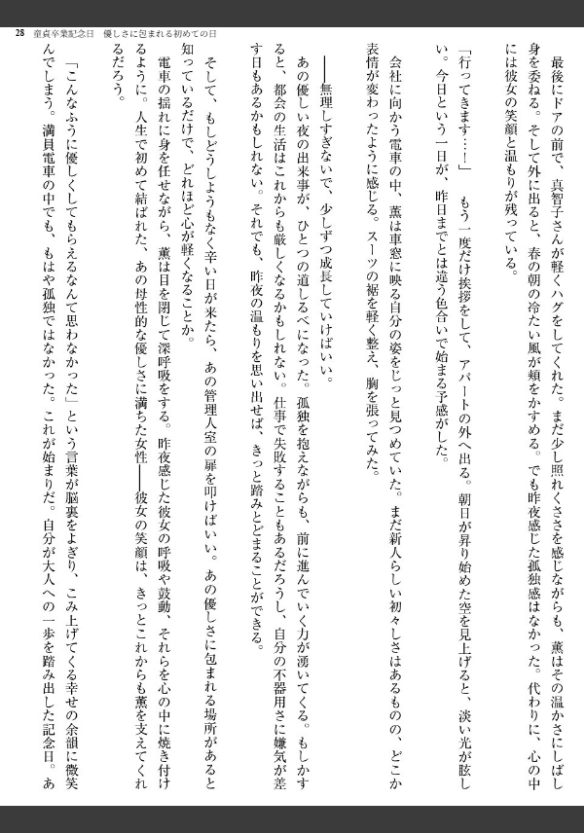 28 童貞卒業記念日　優しさに包まれる初めての日
　最後にドアの前で、真智子さんが軽くハグをしてくれた。まだ少し照れくささを感じながらも、薫はその温かさにしばし
身を委ねる。そして外に出ると、春の朝の冷たい風が頬をかすめる。でも昨夜感じた孤独感はなかった。代わりに、心の中
には彼女の笑顔と温もりが残っている。
「行ってきます…！」　もう一度だけ挨拶をして、アパートの外へ出る。朝日が昇り始めた空を見上げると、淡い光が眩し
い。今日という一日が、昨日までとは違う色合いで始まる予感がした。
　会社に向かう電車の中、薫は車窓に映る自分の姿をじっと見つめていた。まだ新人らしい初々しさはあるものの、どこか
表情が変わったように感じる。スーツの裾を軽く整え、胸を張ってみた。
――無理しすぎないで、少しずつ成長していけばいい。
　あの優しい夜の出来事が、ひとつの道しるべになった。孤独を抱えながらも、前に進んでいく力が湧いてくる。もしかす
ると、都会の生活はこれからも厳しくなるかもしれない。仕事で失敗することもあるだろうし、自分の不器用さに嫌気が差
す日もあるかもしれない。それでも、昨夜の温もりを思い出せば、きっと踏みとどまることができる。
　そして、もしどうしようもなく辛い日が来たら、あの管理人室の扉を叩けばいい。あの優しさに包まれる場所があると
知っているだけで、どれほど心が軽くなることか。
　電車の揺れに身を任せながら、薫は目を閉じて深呼吸をする。昨夜感じた彼女の呼吸や鼓動、それらを心の中に焼き付け
るように。人生で初めて結ばれた、あの母性的な優しさに満ちた女性――彼女の笑顔は、きっとこれからも薫を支えてくれ
るだろう。
　「こんなふうに優しくしてもらえるなんて思わなかった」という言葉が脳裏をよぎり、こみ上げてくる幸せの余韻に微笑
んでしまう。満員電車の中でも、もはや孤独ではなかった。これが始まりだ。自分が大人への一歩を踏み出した記念日。あ